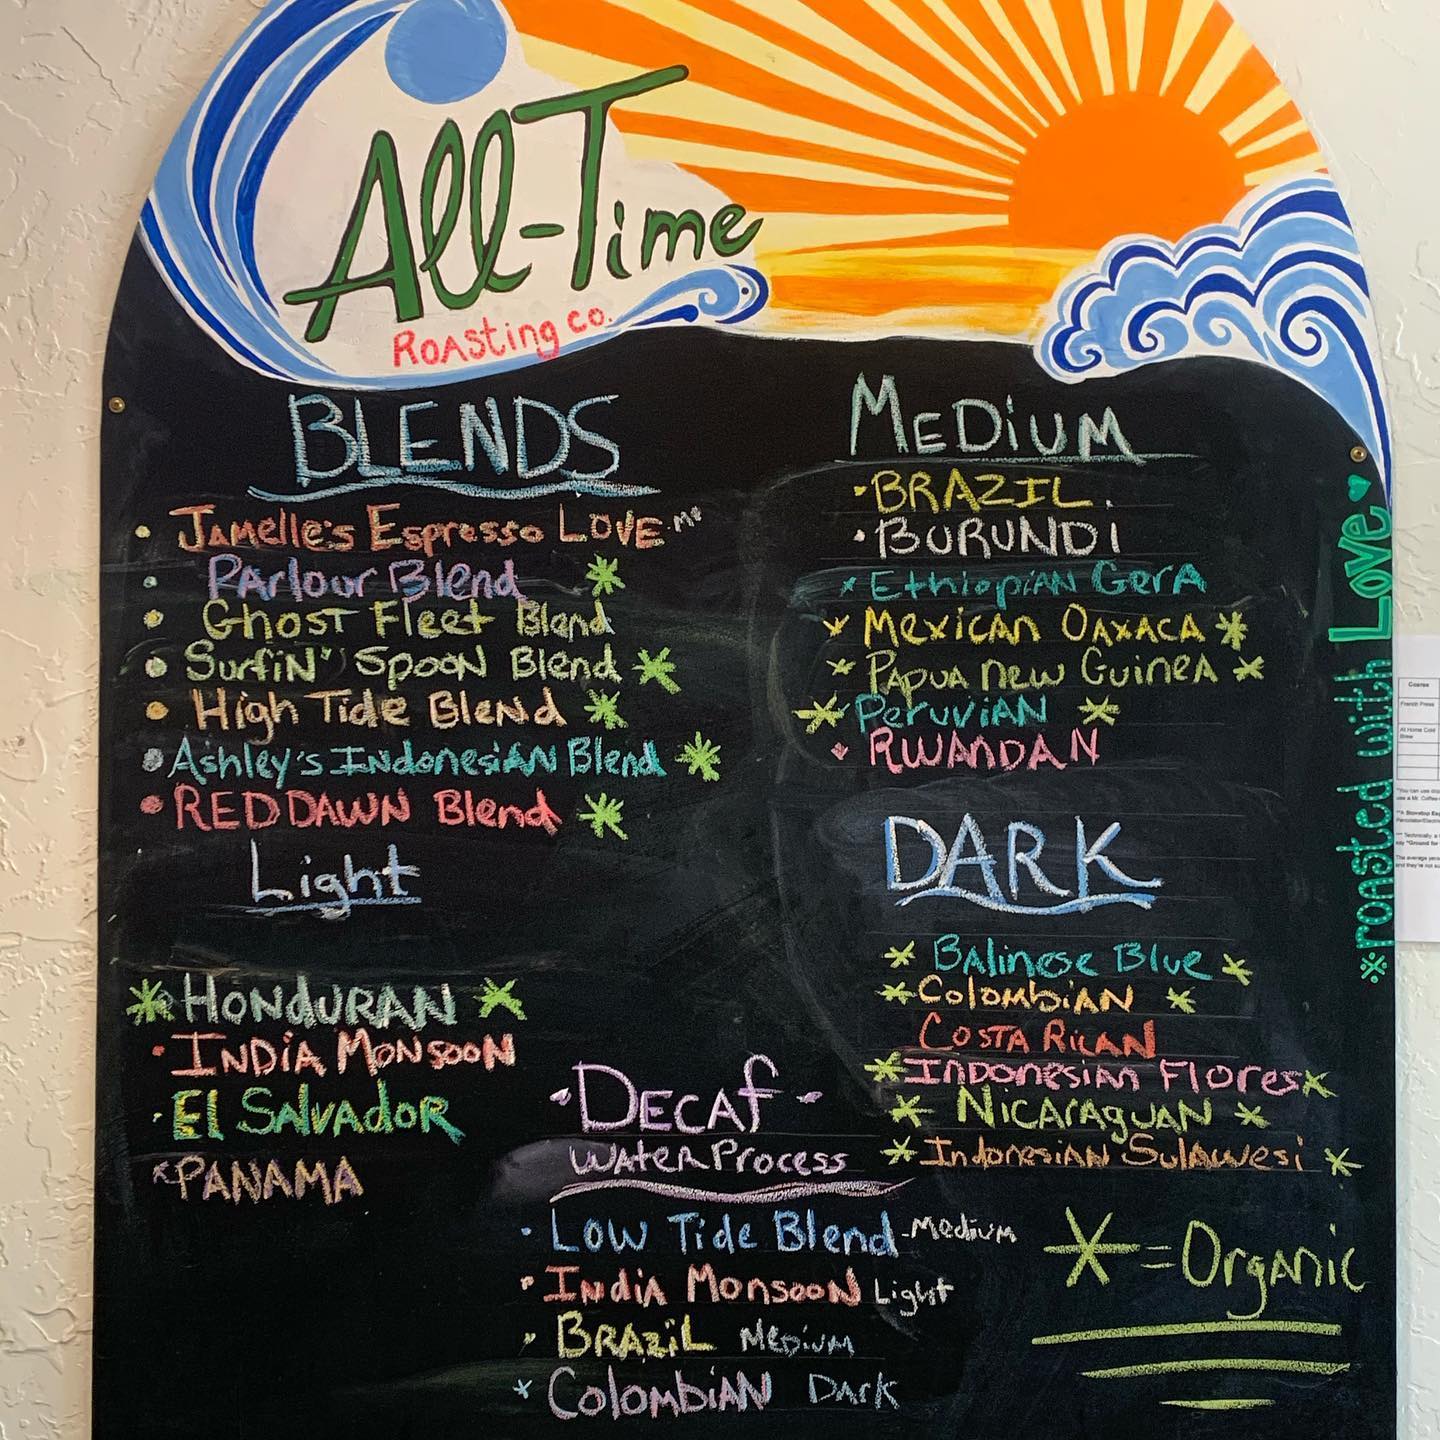 All-Time
Roasting co.
BLENDS
• Jamelle's Espresso LOVE
Parlour Blend *
• Ghost Fleet Blend
• Surfin' Spoon Blend *
• High Tide Blend *
• Ashley's Indonesian Blend *
• RED DAWN Blend *
Light
* HONDURAN *
• INDIA MONSOON
• El SALVADOR
* PANAMA
MEDiUM
• BRAZIL
• BURUNDI
* Ethiopian Gera
* Mexican Oaxaca *
* Papua new Guinea *
* Peruvian *
• RWANDAN
DARK
* Balinese Blue *
* Colombian *
Costa Rican
* Indonesian Flores *
* Nicaraguan *
* Indonesian Sulawesi *
- DECAf -
Water Process
• Low Tide Blend - Medium
• India Monsoon Light
• BRAZiL Medium
* Colombian Dark
* = Organic
* roasted with Love ♥
Coarse
French Press
At Home Cold
Brew